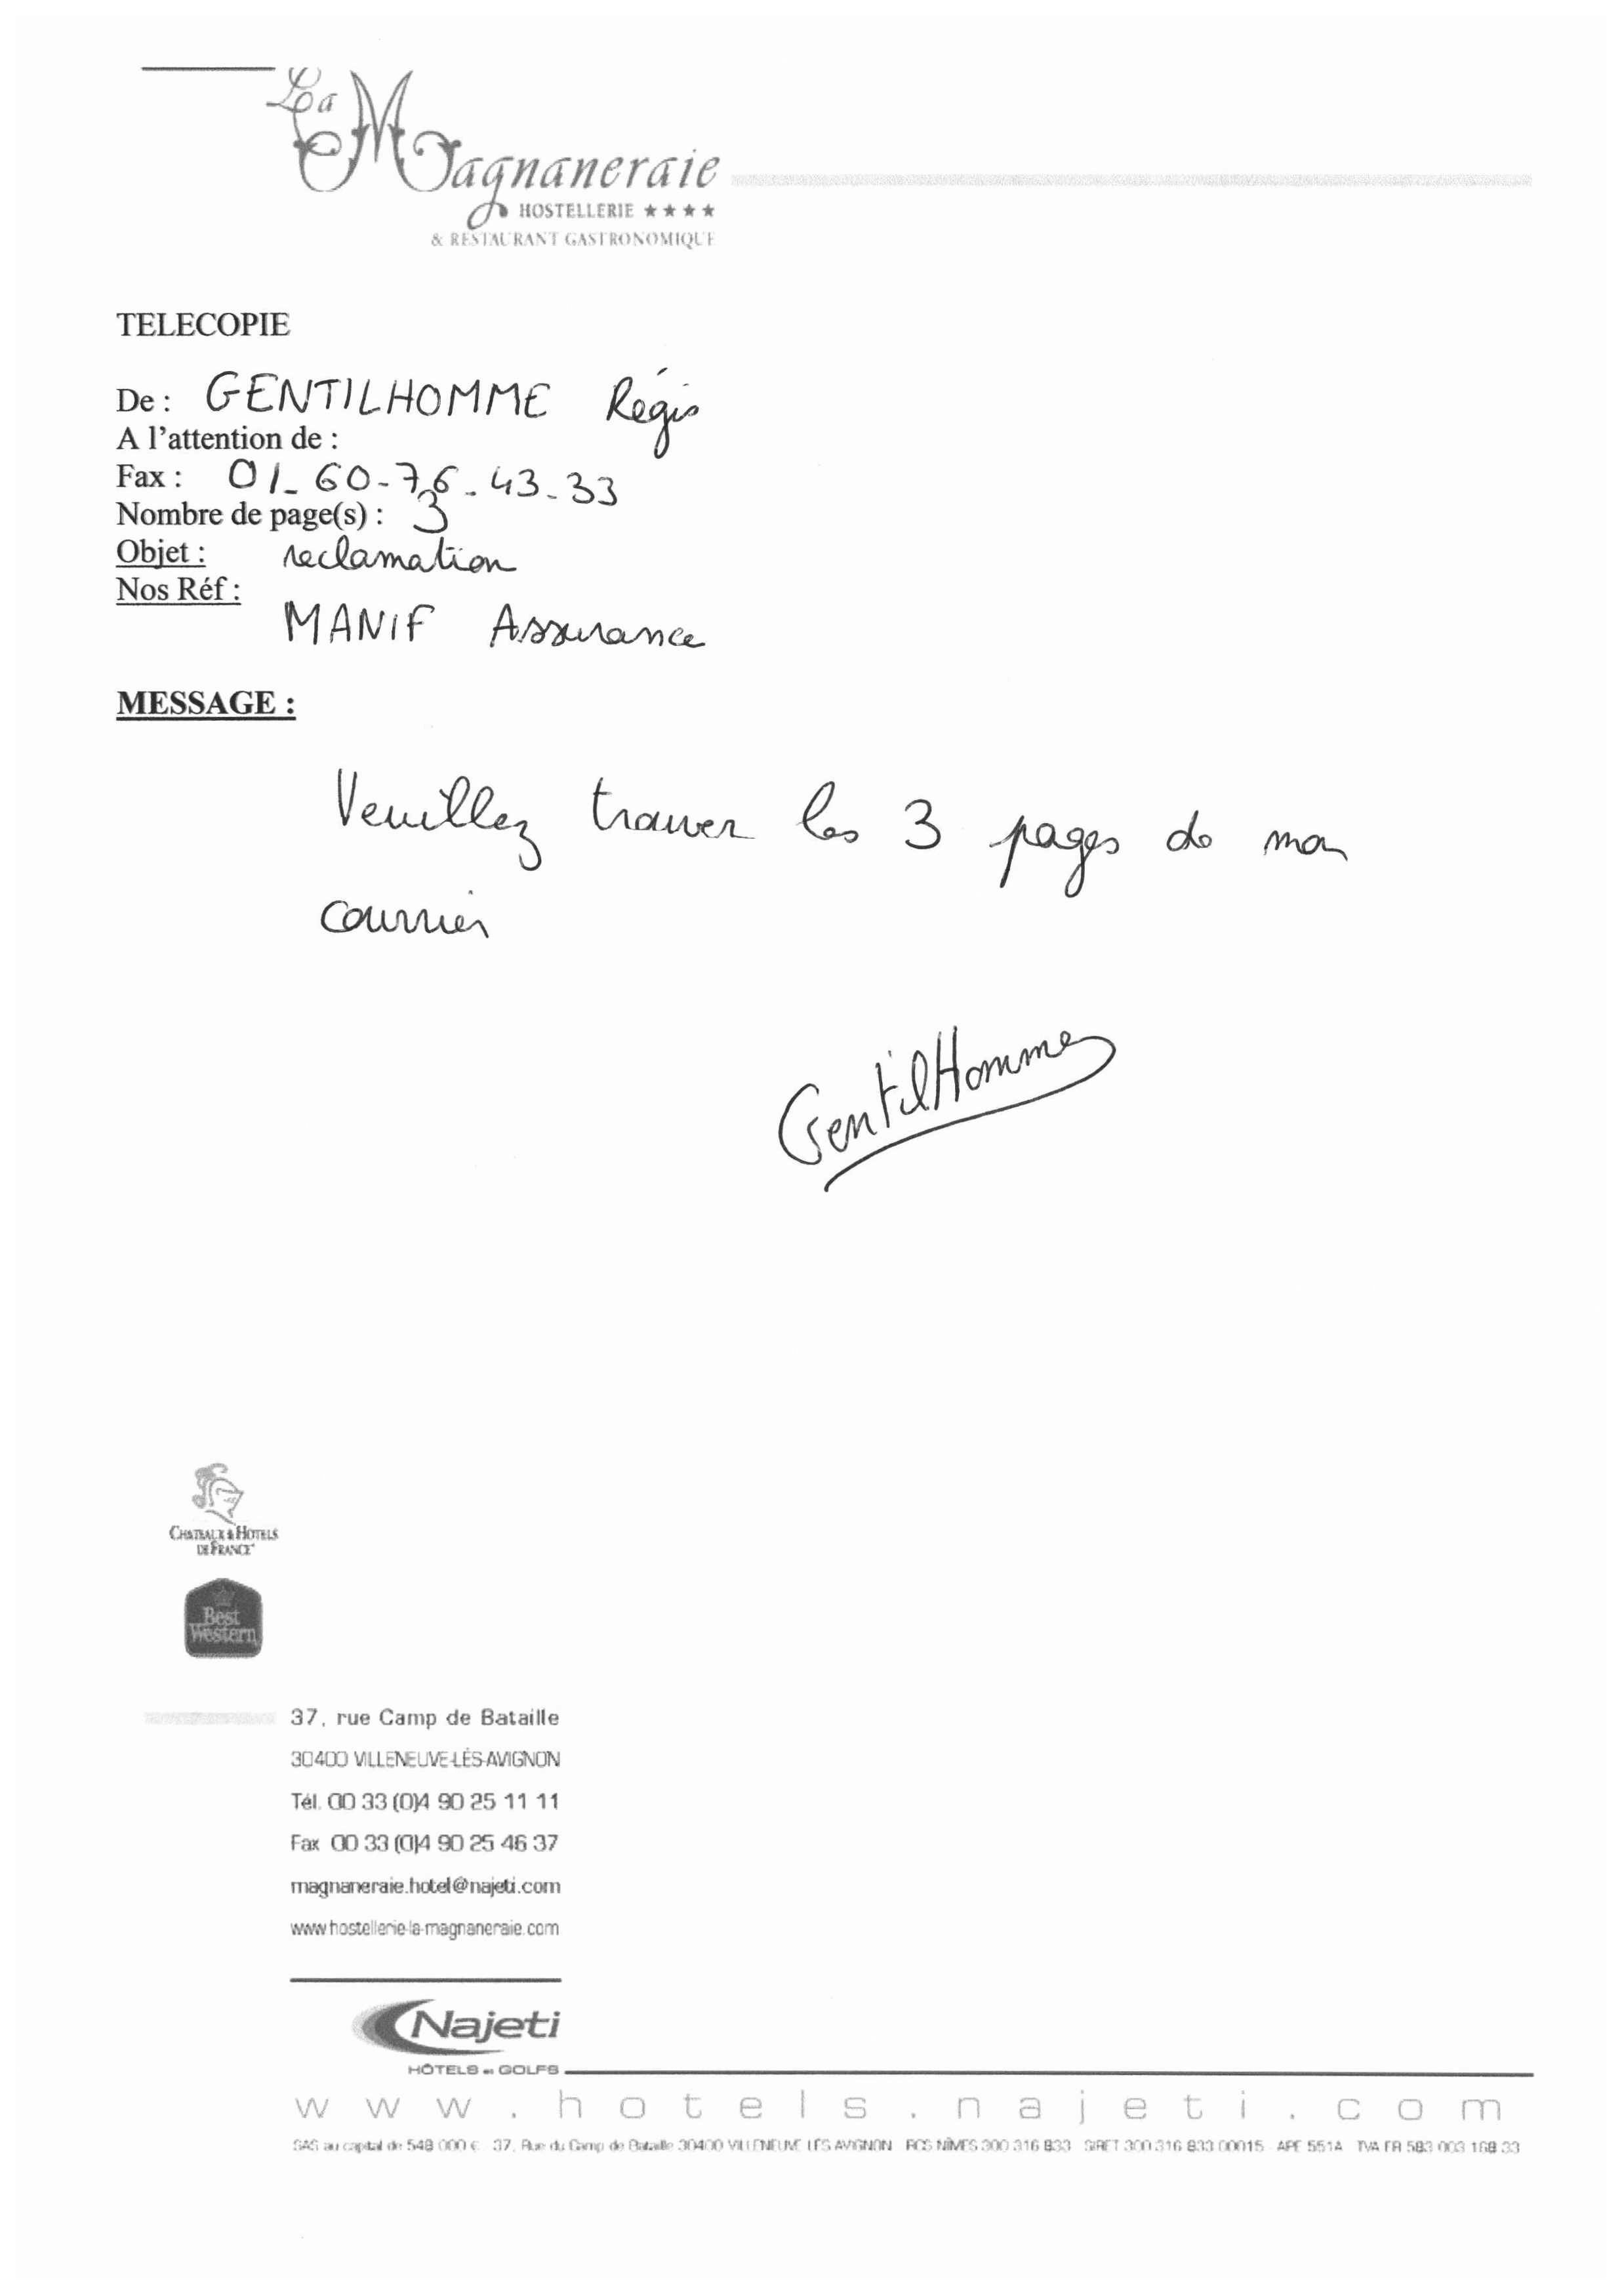 La Magnaneraie
HOSTELLERIE ★★★★
& RESTAURANT GASTRONOMIQUE
TELECOPIE
De : GENTILHOMME Régis
A l'attention de :
Fax : 01-60-76-43-33
Nombre de page(s) : 3
Objet : reclamation
Nos Réf :
MANIF Assurance
MESSAGE :
Veuillez trouver les 3 pages de mon
courrier
GentilHomme
CHATEAUX & HOTELS
DE FRANCE
Best
Western
37, rue Camp de Bataille
30400 VILLENEUVE-LÈS-AVIGNON
Tél. 00 33 (0)4 90 25 11 11
Fax 00 33 (0)4 90 25 46 37
magnaneraie.hotel@najeti.com
www.hostellerie-la-magnaneraie.com
Najeti
HÔTELS et GOLFS
www.hotels.najeti.com
SAS au capital de 548 000 € 37, Rue du Camp de Bataille 30400 VILLENEUVE LÈS AVIGNON RCS NÎMES 300 316 833 SIRET 300 316 833 00015 APE 551A TVA FR 583 003 168 33